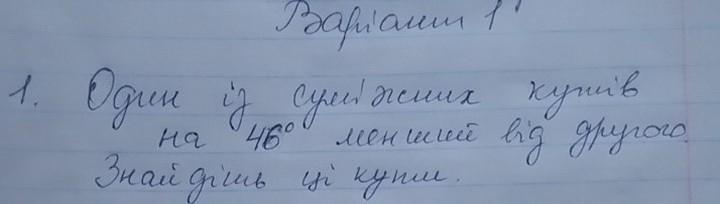 Варіант 1
1. Один із суміжних кутів
на 46° менший від другого.
Знайдіть ці кути.